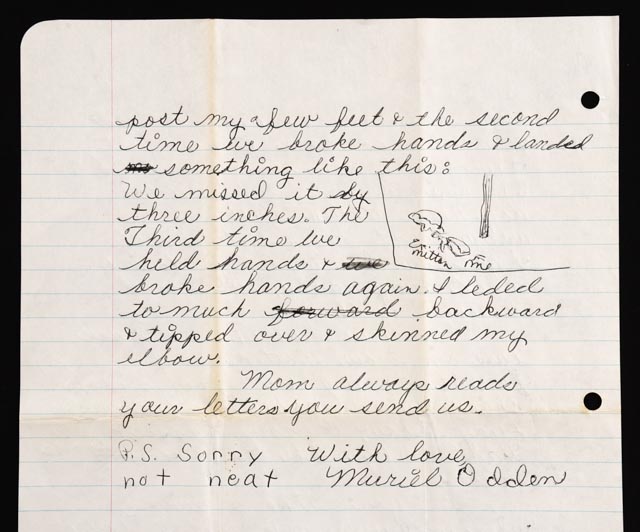 post my a few feet & the second
time we broke hands & landed
something like this:
We missed it by
three inches. The
Third time we
mitten me
held hands & we
broke hands again. I leded
to much forward backward
& tipped over & skinned my
elbow.
Mom always reads
your letters you send us.
P.S. Sorry With love,
not neat Muriel Odden